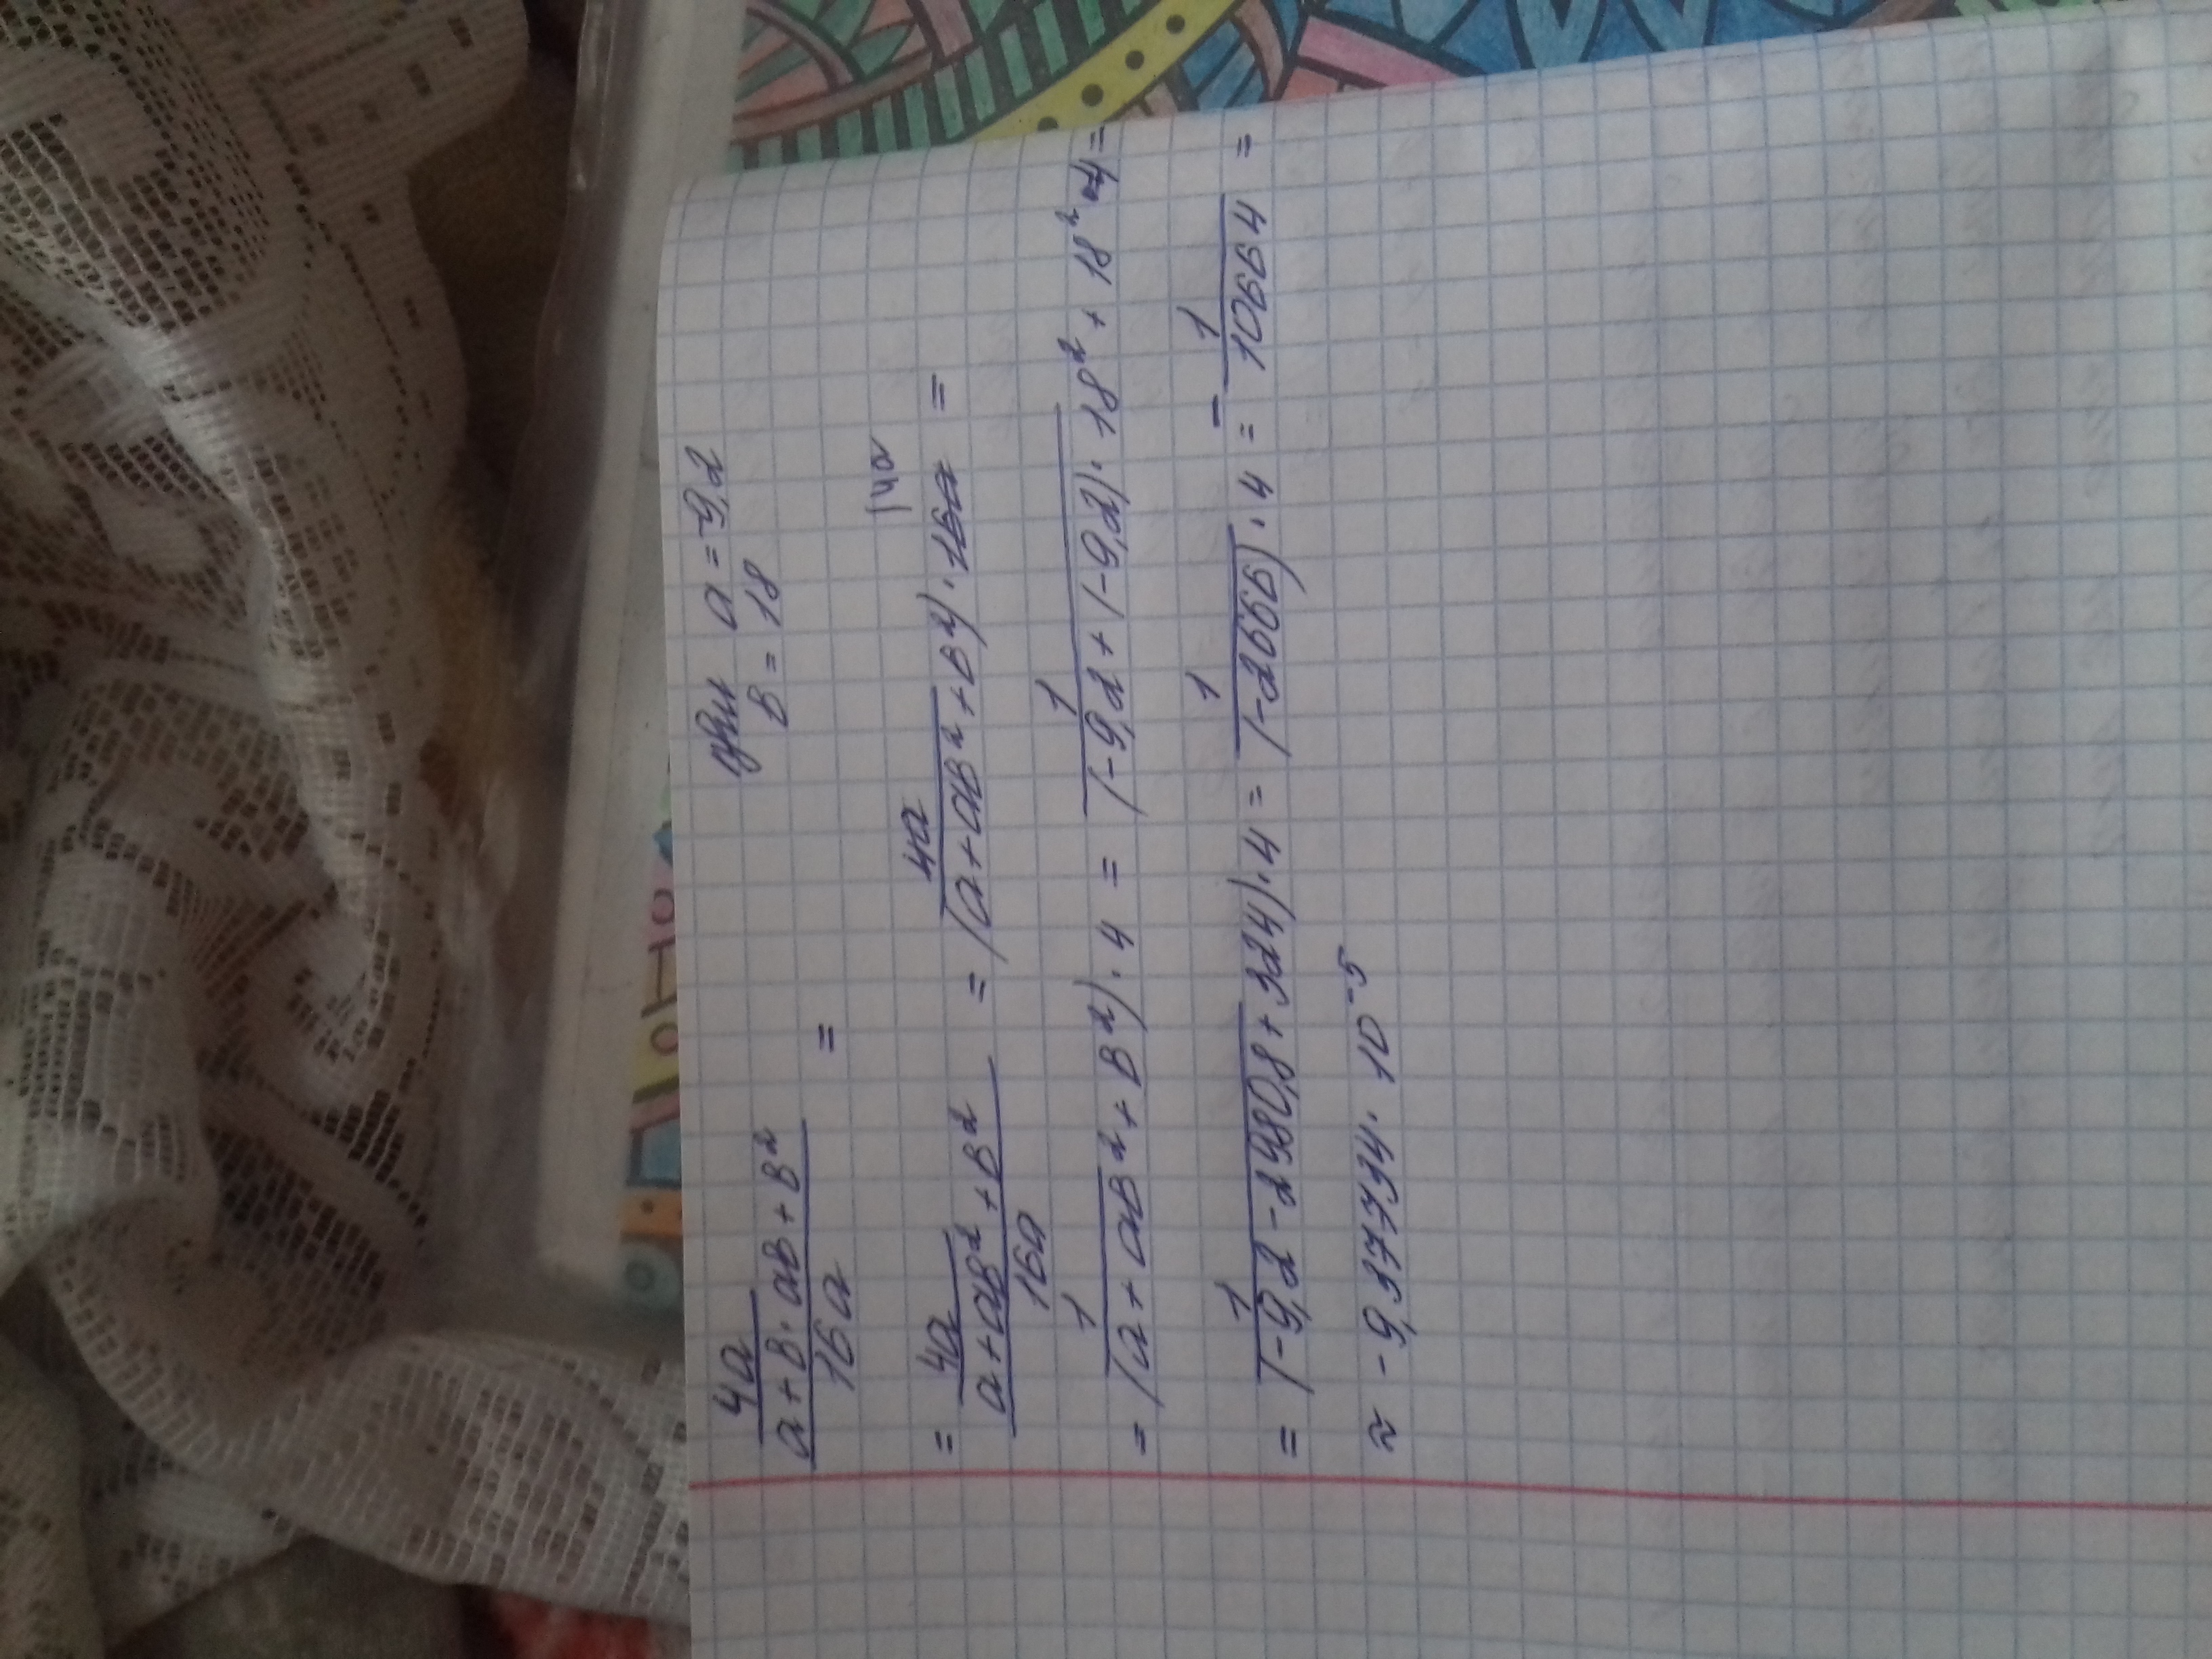 4a / a+в · aв+в² / 16a = при a = -9,2
в = 18
= 4a / a+aв²+в² / 16a = 4a / (a+aв²+в²)·16a = |4a
= 1 / (a+aв²+в²)·4 = 1 / (-9,2+(-9,2)·18²+18²)·4 =
= 1 / (-9,2-2980,8+324)·4 = 1 / (-2666)·4 = - 1 / 10664 =
≈ -9,37734·10⁻⁵